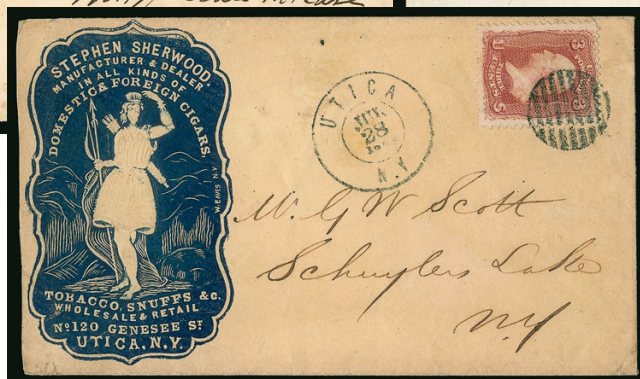 STEPHEN SHERWOOD
MANUFACTURER & DEALER
IN ALL KINDS OF
DOMESTIC & FOREIGN CIGARS,
W. EAVES N.Y
TOBACCO, SNUFFS &C.
WHOLESALE & RETAIL
No 120 GENESEE ST
UTICA, N.Y.
UTICA
28
N.Y
U S
3 3
Mr. G W Scott
Schuylers Lake
NY